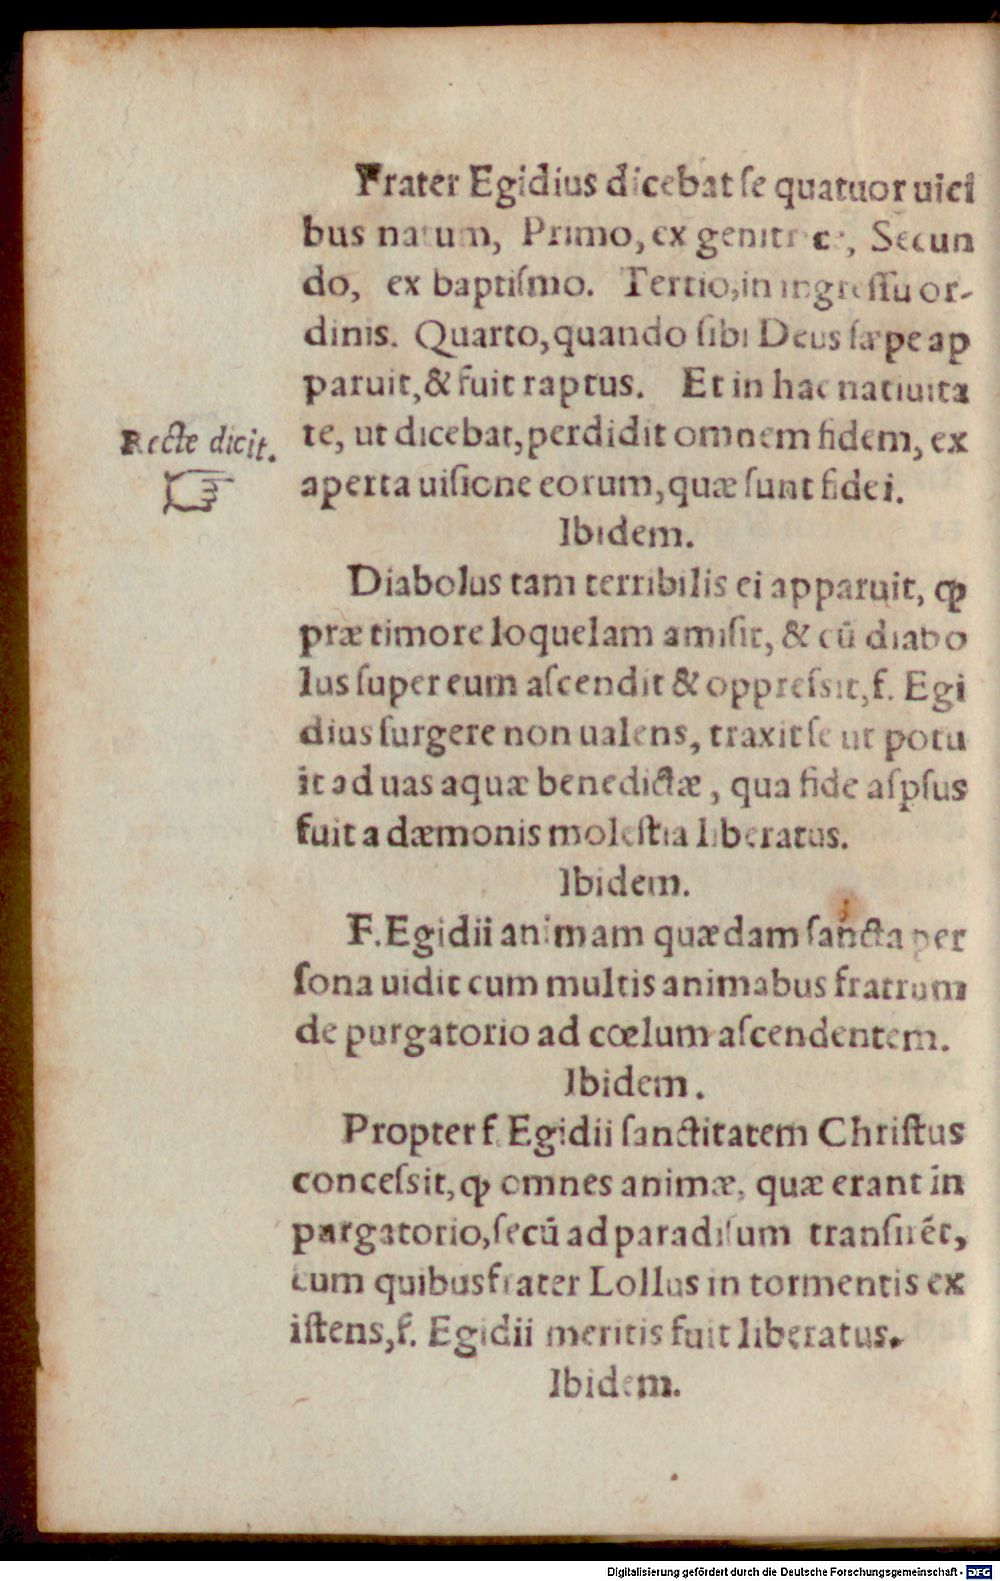 Frater Egidius dicebat ſe quatuor uici
bus natum, Primo, ex genitrice, Secun
do, ex baptiſmo. Tertio, in ingreſſu or-
dinis. Quarto, quando ſibi Deus ſæpe ap
paruit, & fuit raptus. Et in hac natiuita
te, ut dicebat, perdidit omnem fidem, ex
aperta uiſione eorum, quæ ſunt fidei.
Recte dicit.
Ibidem.
Diabolus tam terribilis ei apparuit, ꝙ
præ timore loquelam amiſit, & cū diabo
lus ſuper eum aſcendit & oppreſsit, f. Egi
dius ſurgere non ualens, traxit ſe ut potu
it ad uas aquæ benedictæ, qua fide aſpſus
fuit a dæmonis moleſtia liberatus.
Ibidem.
F. Egidii animam quædam ſancta per
ſona uidit cum multis animabus fratrum
de purgatorio ad cœlum aſcendentem.
Ibidem.
Propter f. Egidii ſanctitatem Chriſtus
conceſsit, ꝙ omnes animæ, quæ erant in
purgatorio, ſecū ad paradiſum tranſirēt,
cum quibus frater Lollus in tormentis ex
iſtens, f. Egidii meritis fuit liberatus.
Ibidem.
Digitalisierung gefördert durch die Deutsche Forschungsgemeinschaft - DFG